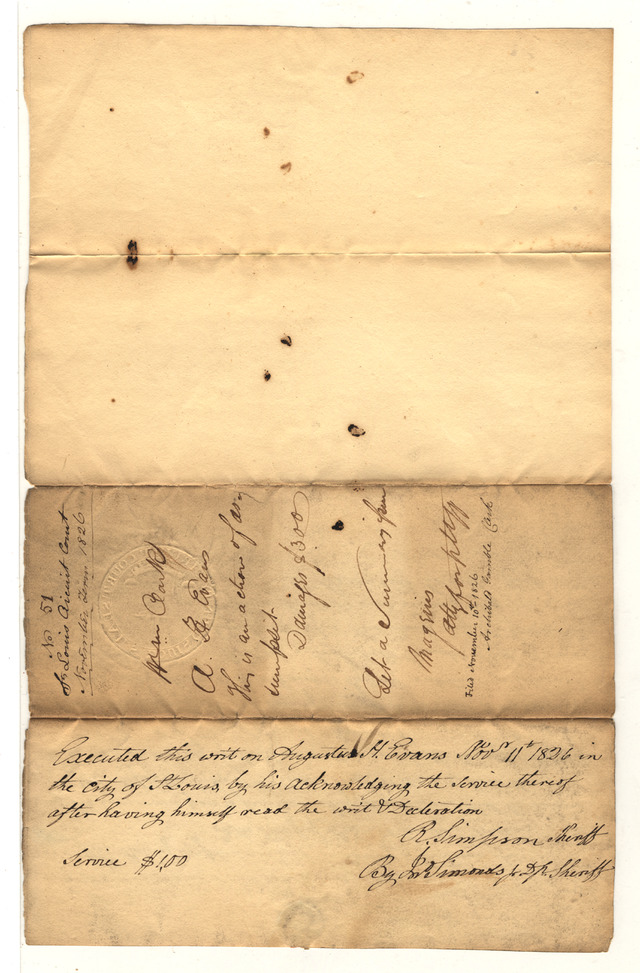 No 51
St Louis Circuit Court
November Term 1826
Wm Clark
A. H. Evans
This is an action of as
sumpsit
Damages $300
Let a Summons issue
Magenis
atty for pltff
Filed November 10th 1826
Archibald Gamble Clerk
Executed this writ on Augustus H. Evans Novr 11th 1826 in
the City of St Louis, by his acknowledging the service thereof
after having himself read the writ & Decleration
R. Simpson Sheriff
By Jno Simonds jr D. Sheriff
Service $1,00